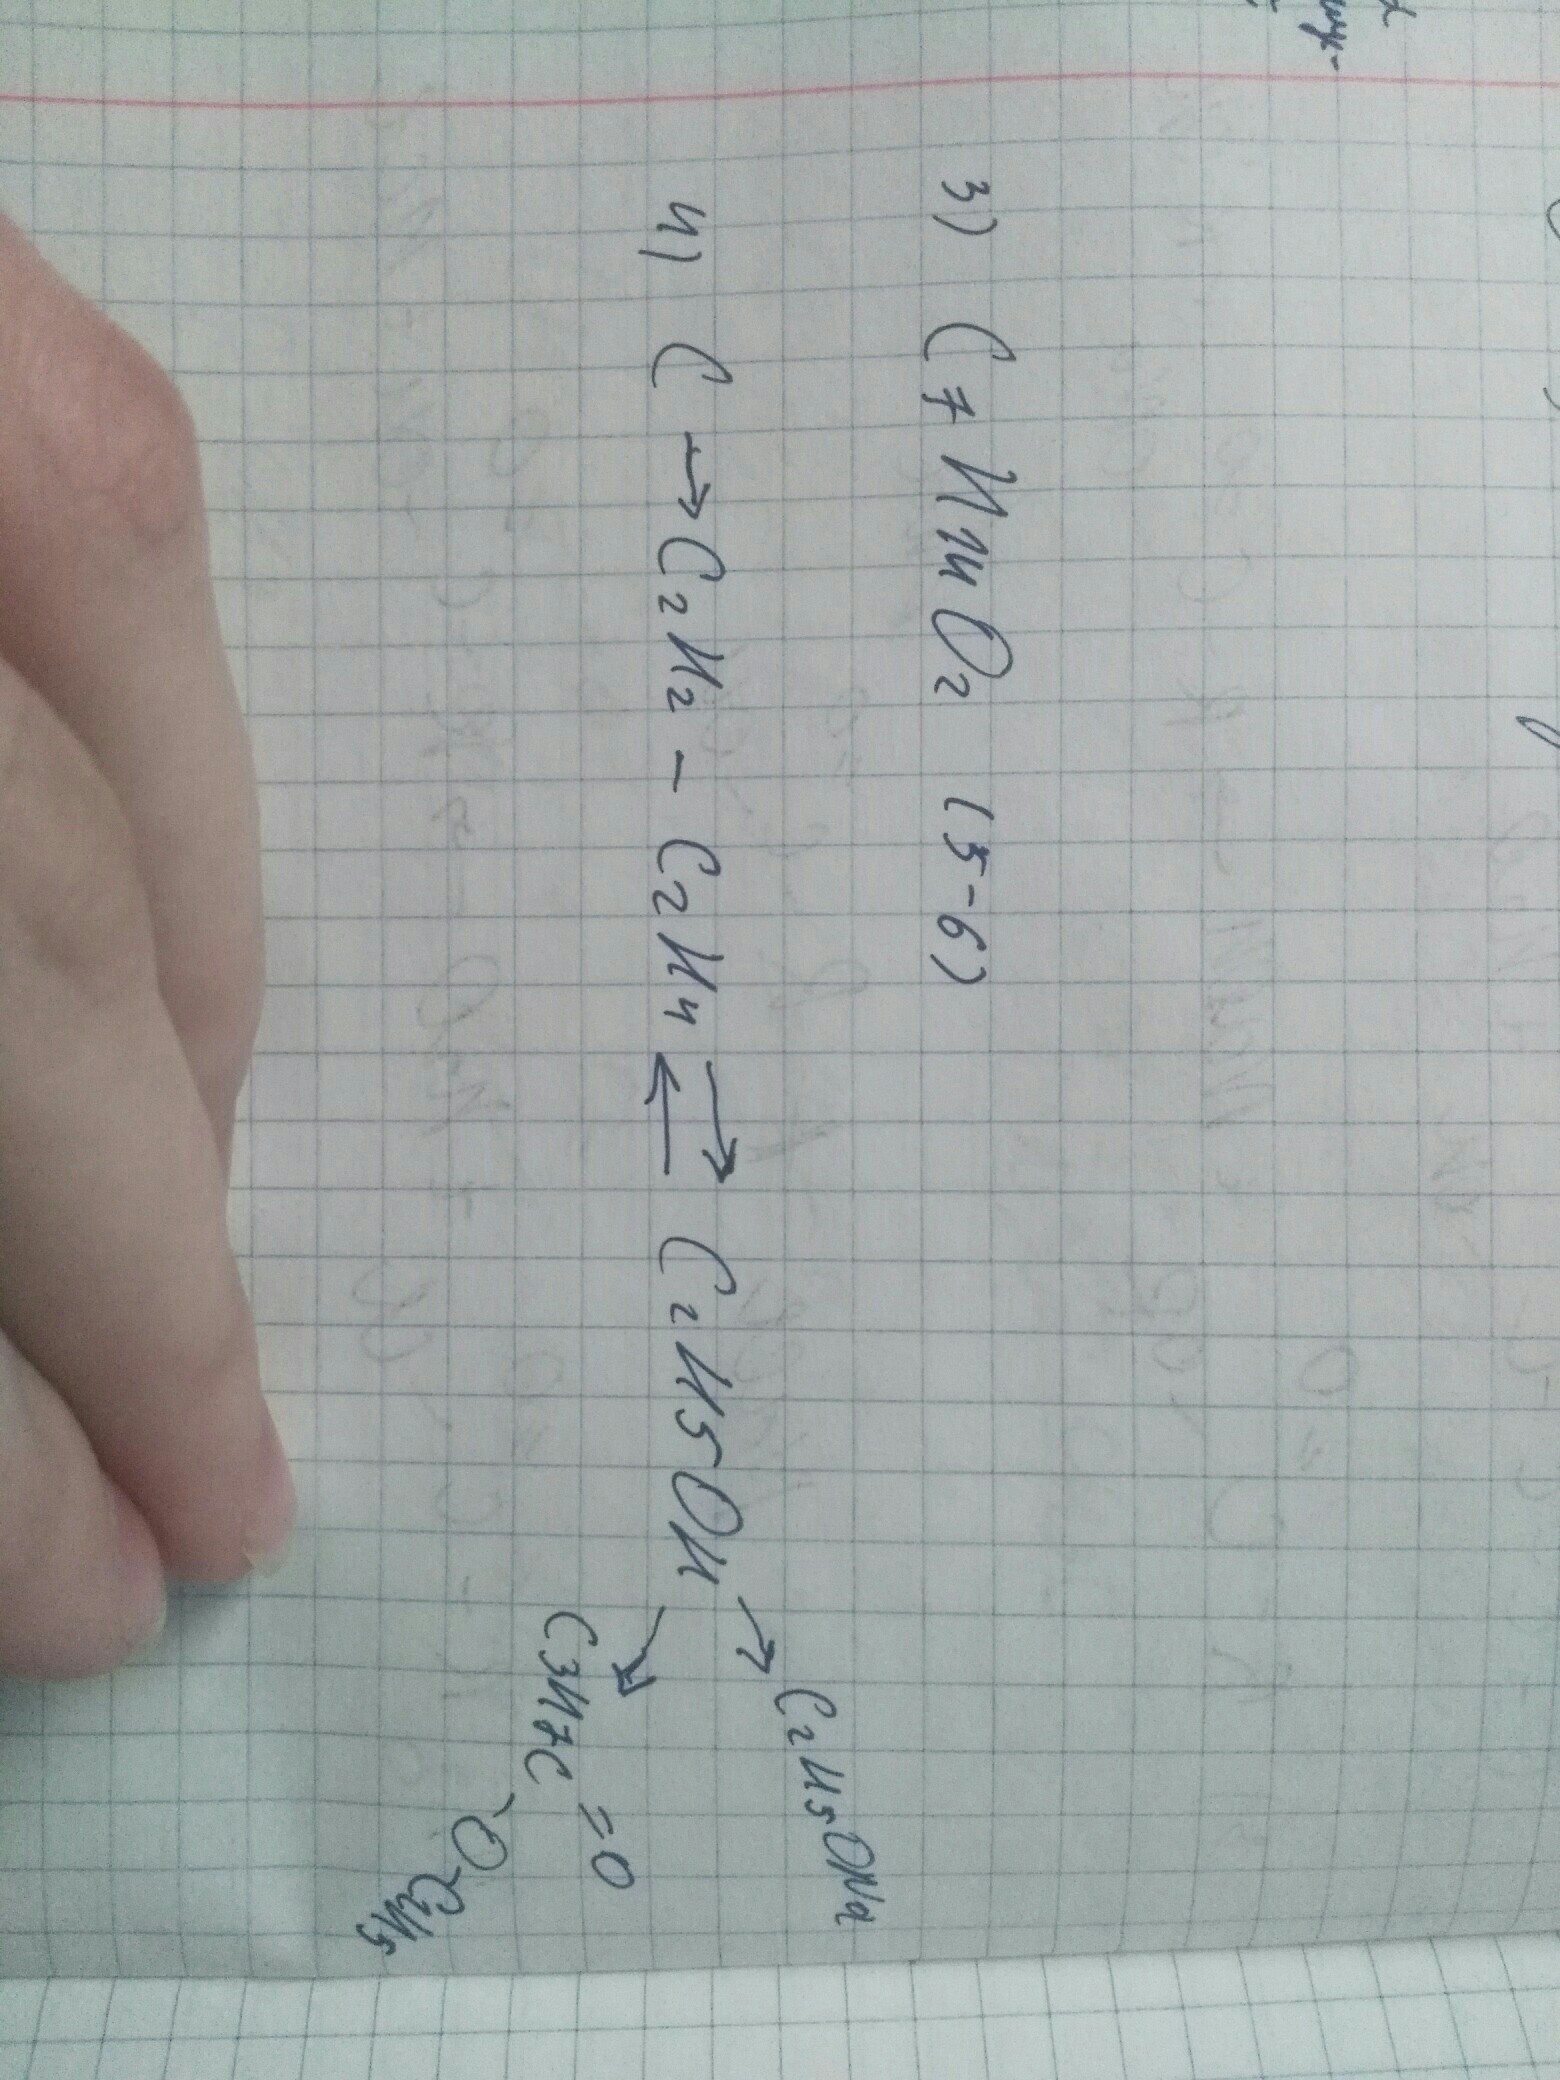 3) C7H14O2 (5-6)
4) C → C2H2 - C2H4 ⇄ C2H5OH
↗ C2H5ONa
↘ C3H7C = O
- O - C2H5